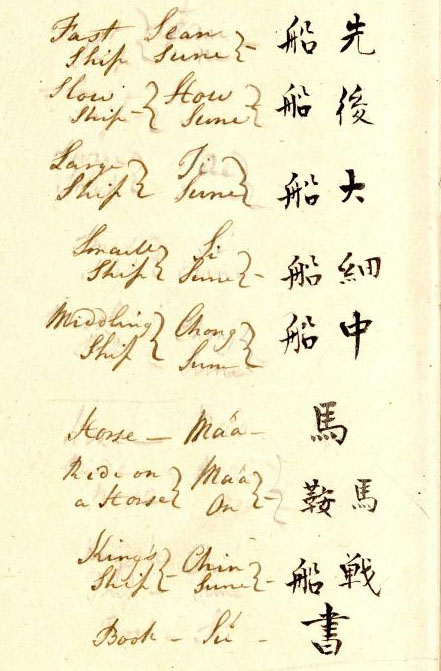 Fast Ship } Sean Sune } - 船 先
Slow Ship } How Sune } 船 後
Large Ship } Ti Sune } 船 大
Small Ship } Si Sune } - 船 細
Middling Ship } Chong Sune } 船 中
Horse - Maa - 馬
Ride on a Horse } Maa On } - 鞍 馬
King's Ship } - Chin Sune } - 船 戦
Book - Sú - 書